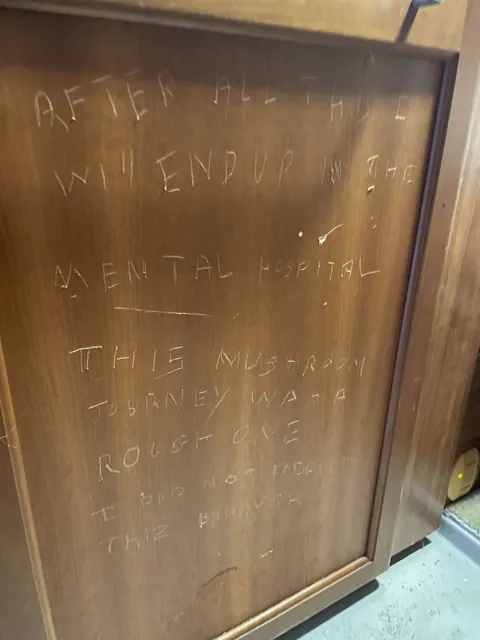 AFTER ALL THIS I
Will END UP IN THE
MENTAL HOSPITAL
THIS MUSHROOM
JOURNEY WAS A
ROUGH ONE
I DID NOT EXPECT
THIS BEHAVIOUR